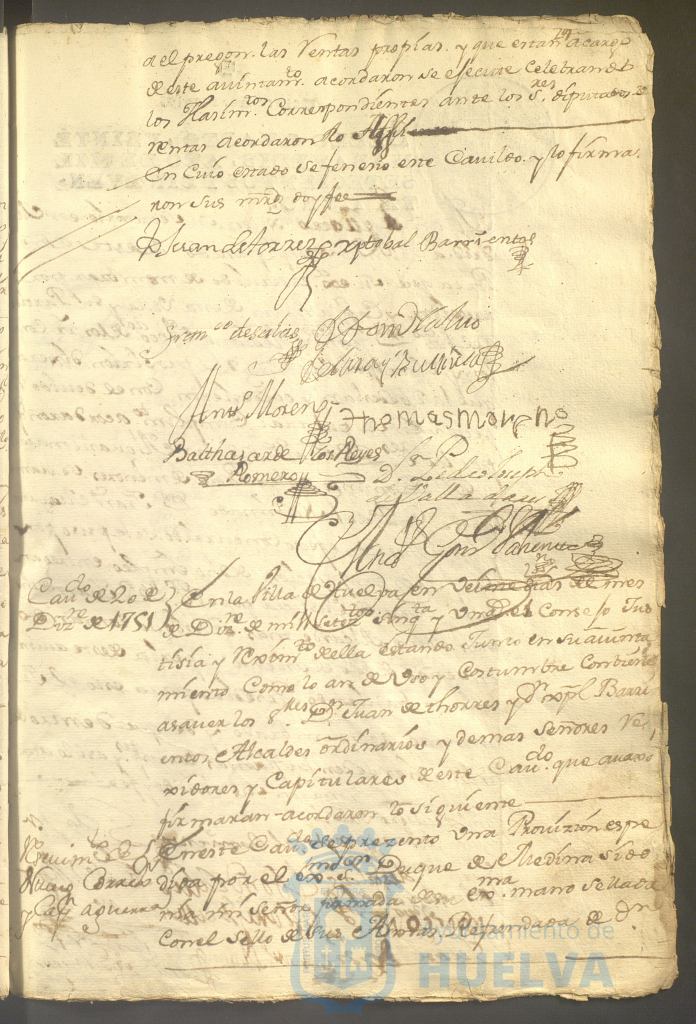 del pregon. las Ventas propias. y que estan a cargo
de este aiuntam.to acordaron se efecute celebrando
los Hasim.tos Correspondientes ante los s.res diputados de
rentas acordaron lo
En Cuio estado se fenecio este Cavildo. y lo firma
ron sus mrds doy fee
Juan de torrez Xptobal Barrientos
Fran.co de
Ant.o Moreno
thomas moreno
Balthasar de los Reyes
Romero
Cav.do de 20 de
Diz.re de 1751
En la Villa de Huelva en veinte dias del mes
de Diz.re de mill setez.tos sinq.ta y un el Consejo Jus
tisia y Reximto della estando Junto en su aiunta
miento Como lo an de Vso y Costumbre Combiene
asaver los S.res D.n Juan de thorres y D.n Xpl Barri
entos Alcaldes ordinarios y demas señores Re
xidores y Capitulares de este Cav.do que avaxo
firmaran acordaron lo siguiente
En este Cav.do se prezento una Provizion espe
dida por el ex.mo S.r Duque de Medina sido
nia mi Señor firmada de su ex.ma mano sellada
Con el Sello de sus Armas Refrendada de D.n
Ayuntamiento de
HUELVA